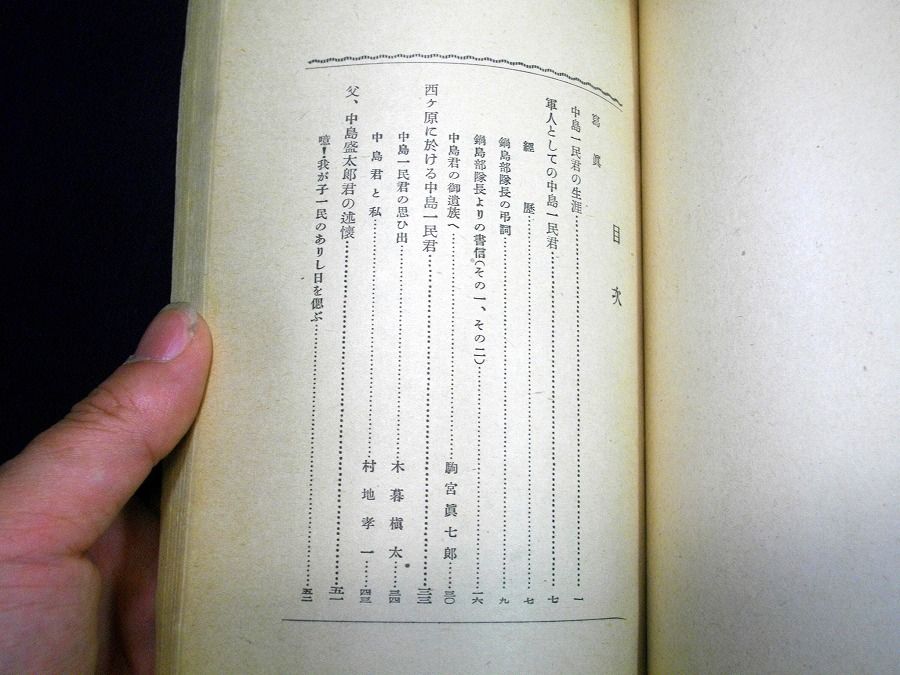 目次
寫眞
中島一民君の生涯……一
軍人としての中島一民君……七
經歷……七
鍋島部隊長の弔詞……九
鍋島部隊長よりの書信(その一、その二)……一六
中島君の御遺族へ……駒宮眞七郎……三〇
西ヶ原に於ける中島一民君……三三
中島一民君の思ひ出……木暮槇太……三四
中島君と私……村地孝一……四三
父、中島盛太郎君の述懷……五一
噫！我が子一民のありし日を偲ぶ……五二